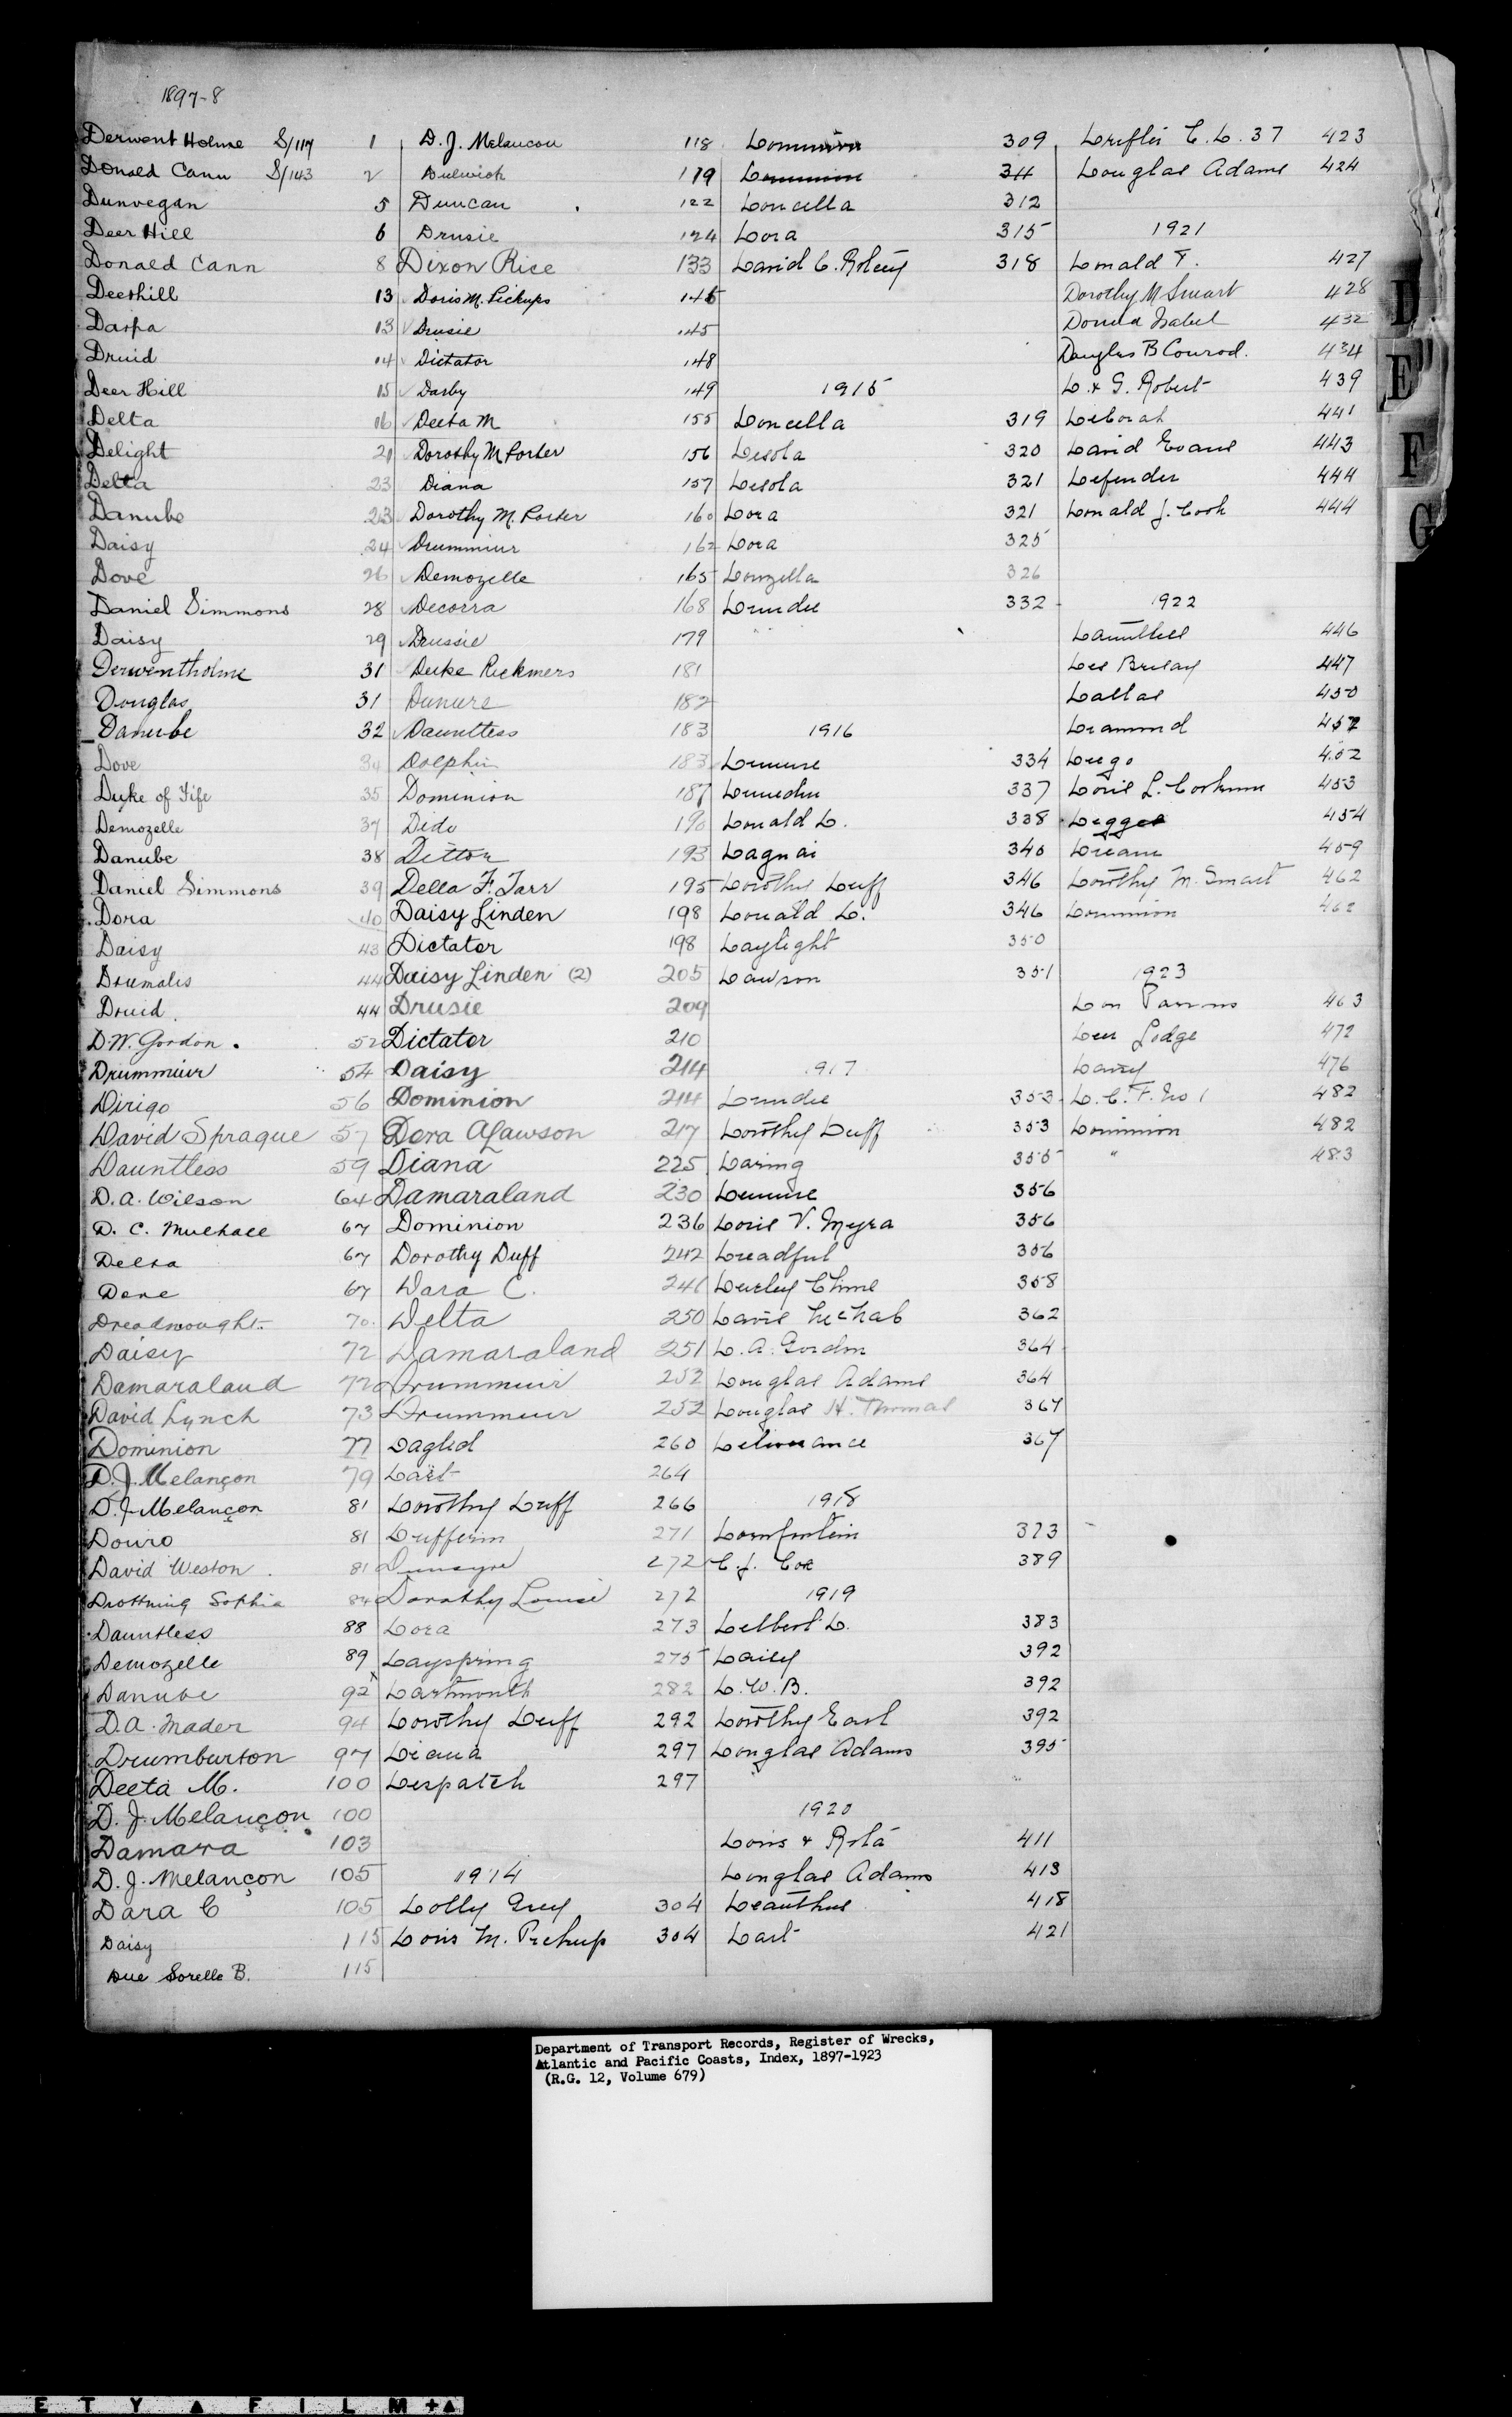 1897-8
Derwent Holme S/117 1
Donald Cann S/143 2
Dunvegan 5
Deer Hill 6
Donald Cann 8
Deerhill 13
Darpa 13
Druid 14
Deer Hill 15
Delta 16
Delight 21
Delta 23
Danube 23
Daisy 24
Dove 26
Daniel Simmons 28
Daisy 29
Derwentholme 31
Douglas 31
Danube 32
Dove 34
Duke of Fife 35
Demozelle 37
Danube 38
Daniel Simmons 39
Dora 40
Daisy 43
Drumalis 44
Druid 44
D.W. Gordon. 52
Drummuir 54
Dirigo 56
David Sprague 57
Dauntless 59
D. A. Wilson 64
D. C. Mulhall 67
Delta 67
Dene 67
Dreadnought 70
Daisy 72
Damaraland 72
David Lynch 73
Dominion 77
D. J. Melançon 79
D. J. Melançon 81
Douro 81
David Weston 81
Drottning Sophia 84
Dauntless 88
Demozelle 89
Danube 92
D. A. Mader 94
Drumburton 97
Deeta M. 100
D. J. Melançon 100
Damara 103
D. J. Melançon 105
Dara C 105
Daisy 115
Due Sorelle B. 115
D. J. Melancon 118
Dulwich 119
Duncan 122
Drusie 124
Dixon Rice 133
Doris M. Pickups 145
Drusie 145
Dictator 148
Darby 149
Deeta M 155
Dorothy M Porter 156
Diana 157
Dorothy M. Porter 160
Drummiur 162
Demozelle 165
Decorra 168
Drussie 179
Duke Rickmers 181
Dunure 182
Dauntless 183
Dolphin 183
Dominion 187
Dido 190
Ditton 193
Della F. Tarr 195
Daisy Linden 198
Dictator 198
Daisy Linden (2) 205
Drusie 209
Dictator 210
Daisy 214
Dominion 214
Dora A Lawson 217
Diana 225
Damaraland 230
Dominion 236
Dorothy Duff 242
Dara C. 241
Delta 250
Damaraland 251
Drummuir 252
Drummuir 252
Dagfred 260
Dart 264
Dorothy Duff 266
Dufferin 271
272
Dorothy Louise 272
Dora 273
Dayspring 275
Dartmouth 282
Dorothy Duff 292
Diana 297
Despatch 297
1914
Dolly Grey 304
Doris M. Pickup 304
Dominion 309
311
Doncella 312
Dora 315
David C. Ritcey 318
1915
Doncella 319
Desola 320
Desola 321
Dora 321
Dora 325
Donzella 326
Dundee 332
1916
Dunure 334
337
Donald D. 338
Dagnai 340
Dorothy Duff 346
Donald D. 346
Daylight 350
Dawson 351
1917
Dundee 353
Dorothy Duff 353
Daring 355
Dunure 356
Doris V. Myra 356
Dreadful 356
358
Davie McNab 362
D. A. Gordon 364
Douglas Adams 364
Douglas H. Thomas 367
Deliverance 367
1918
Dornfontein 373
C. J. Coe 389
1919
Delbert D. 383
Daisy 392
D. W. B. 392
Dorothy Earl 392
Douglas Adams 395
1920
Doris & Rota 411
Douglas Adams 413
418
Dart 421
Drifter C. D. 37 423
Douglas Adams 424
1921
Donald T. 427
Dorothy M Smart 428
Donna Isabel 432
Douglas B Conrod. 434
D. & G. Robert 439
Deborah 441
David Evans 443
Defender 444
Donald J. Cook 444
1922
446
447
Dallas 450
Dramond 452
452
Doris L. Corkum 453
454
Dream 459
Dorothy M. Smart 462
Dominion 462
1923
Don Parsons 463
Deer Lodge 472
476
D. C. F. No 1 482
Dominion 482
" 483
D
E
F
G
Department of Transport Records, Register of Wrecks,
Atlantic and Pacific Coasts, Index, 1897-1923
(R.G. 12, Volume 679)
E T Y ▲ F I L M +▲